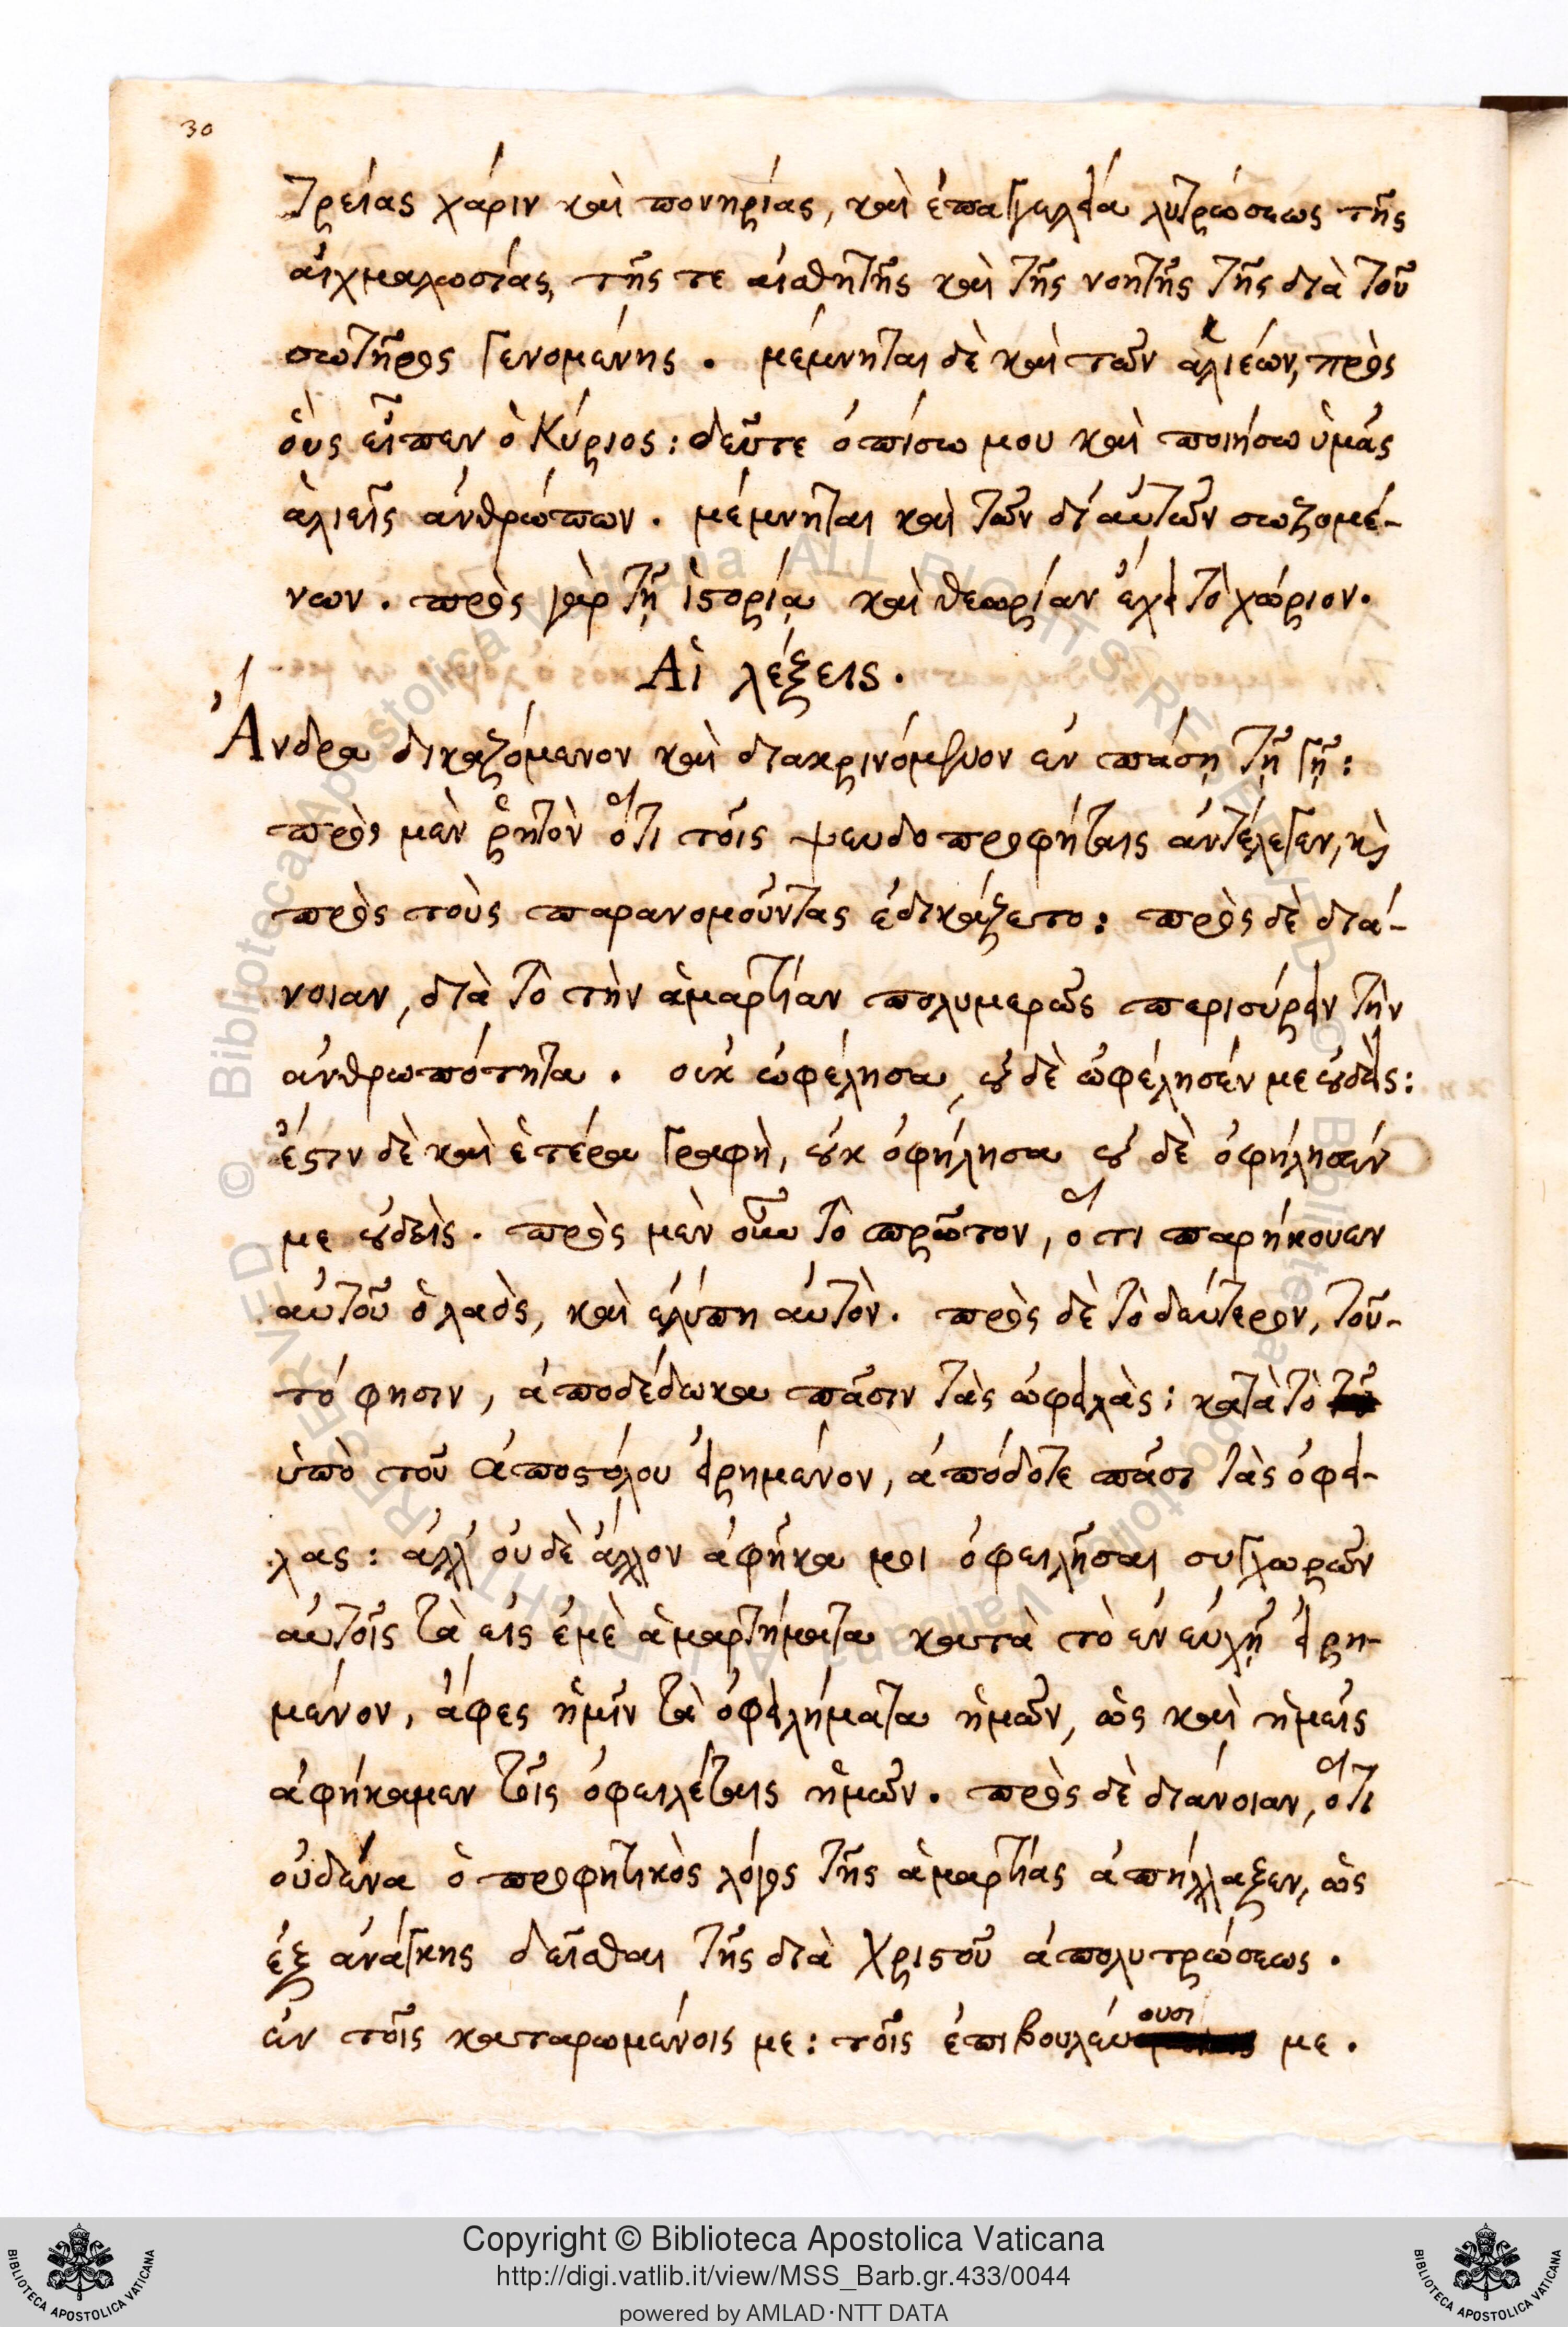 30
τρείας χάριν καὶ πονηρίας, καὶ ἐπαγγελεία λυτρώσεως τῆς
αἰχμαλωσίας, τῆς τε αἰσθητῆς καὶ τῆς νοητῆς τῆς διὰ τοῦ
σωτῆρος γενομένης . μέμνηται δὲ καὶ τῶν ἁλιέων, πρὸς
οὓς εἶπεν ὁ Κύριος : δεῦτε ὀπίσω μου καὶ ποιήσω ὑμᾶς
ἁλιεῖς ἀνθρώπων . μέμνηται καὶ τῶν δι' αὐτῶν σωζομέ-
νων . πρὸς γὰρ τῇ ἱστορίᾳ καὶ θεωρίαν ἔχει τὸ χώριον .
Αἱ λέξεις .
Ἄνδρα δικαζόμενον καὶ διακρινόμενον ἐν πάσῃ τῇ γῇ :
πρὸς μὲν ῥητὸν ὅτι τοῖς ψευδοπροφήταις ἀντέλεγεν, κὶ
πρὸς τοὺς παρανομοῦντας ἐδικάζετο : πρὸς δὲ διά-
νοιαν, διὰ τὸ τὴν ἁμαρτίαν πολυμερῶς περισύρειν τὴν
ἀνθρωπότητα . οὐκ ὠφέλησα, οὐδὲ ὠφέλησέν με οὐδεὶς :
ἔστιν δὲ καὶ ἑτέρα γραφὴ, οὐκ ὀφήλησα οὐ δὲ ὀφήλησέν
με οὐδεὶς . πρὸς μὲν οὖν τὸ πρῶτον, ὅτι παρήκουεν
αὐτοῦ ὁ λαὸς, καὶ ἐλύπη αὐτὸν . πρὸς δὲ τὸ δεύτερον, τοῦ-
τό φησιν, ἀποδέδωκα πᾶσιν τὰς ὠφειλὰς : κατὰ τὸ
ὑπὸ τοῦ ἀποστόλου εἰρημένον, ἀπόδοτε πᾶσι τὰς ὀφει-
λας : ἀλλ' οὐδὲ ἄλλον ἀφῆκα μοι ὀφειλῆσαι συγχωρῶν
αὐτοῖς τὰ εἰς ἐμὲ ἁμαρτήματα κατὰ τὸ ἐν εὐχῇ εἰρη-
μένον, ἄφες ἡμῖν τὰ ὀφειλήματα ἡμῶν, ὡς καὶ ἡμεῖς
ἀφήκαμεν τοῖς ὀφειλέταις ἡμῶν . πρὸς δὲ διάνοιαν, ὅτι
οὐδένα ὁ προφητικὸς λόγος τῆς ἁμαρτίας ἀπήλλαξεν, ὡς
ἐξ ἀνάγκης δεῖσθαι τῆς διὰ Χριστοῦ ἀπολυτρώσεως .
ἐν τοῖς καταρωμένοις με : τοῖς ἐπιβουλεύουσι με .
© Biblioteca Apostolica Vaticana ALL RIGHTS RESERVED
Copyright © Biblioteca Apostolica Vaticana
http://digi.vatlib.it/view/MSS_Barb.gr.433/0044
powered by AMLAD·NTT DATA
BIBLIOTECA APOSTOLICA VATICANA
BIBLIOTECA APOSTOLICA VATICANA